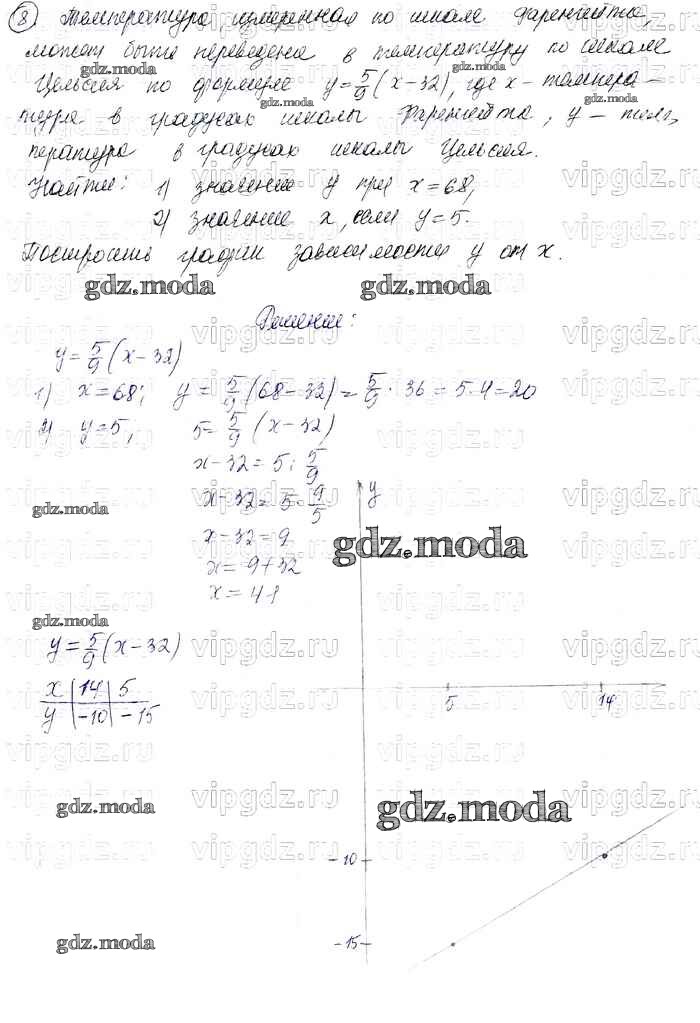 8 Температура, измеренная по шкале Фаренгейта,
может быть переведена в температуру по шкале
Цельсия по формуле y=5/9(x-32), где x - темпера-
тура в градусах шкалы Фаренгейта, y - тем-
пература в градусах шкалы Цельсия.
Найти: 1) значение y при x=68;
2) значение x, если y=5.
Построить график зависимости y от x.
gdz.moda gdz.moda
Решение:
y=5/9(x-32)
1) x=68; y=5/9(68-32)=5/9·36=5·4=20
2) y=5, 5=5/9(x-32)
x-32=5:5/9
x-32=5·9/5
x-32=9
x=9+32
x=41
y
gdz.moda
gdz.moda
gdz.moda
y=5/9(x-32)
x | 14 | 5
y | -10 | -15
5 14
gdz.moda gdz.moda
-10
-15
gdz.moda
vipgdz.ru